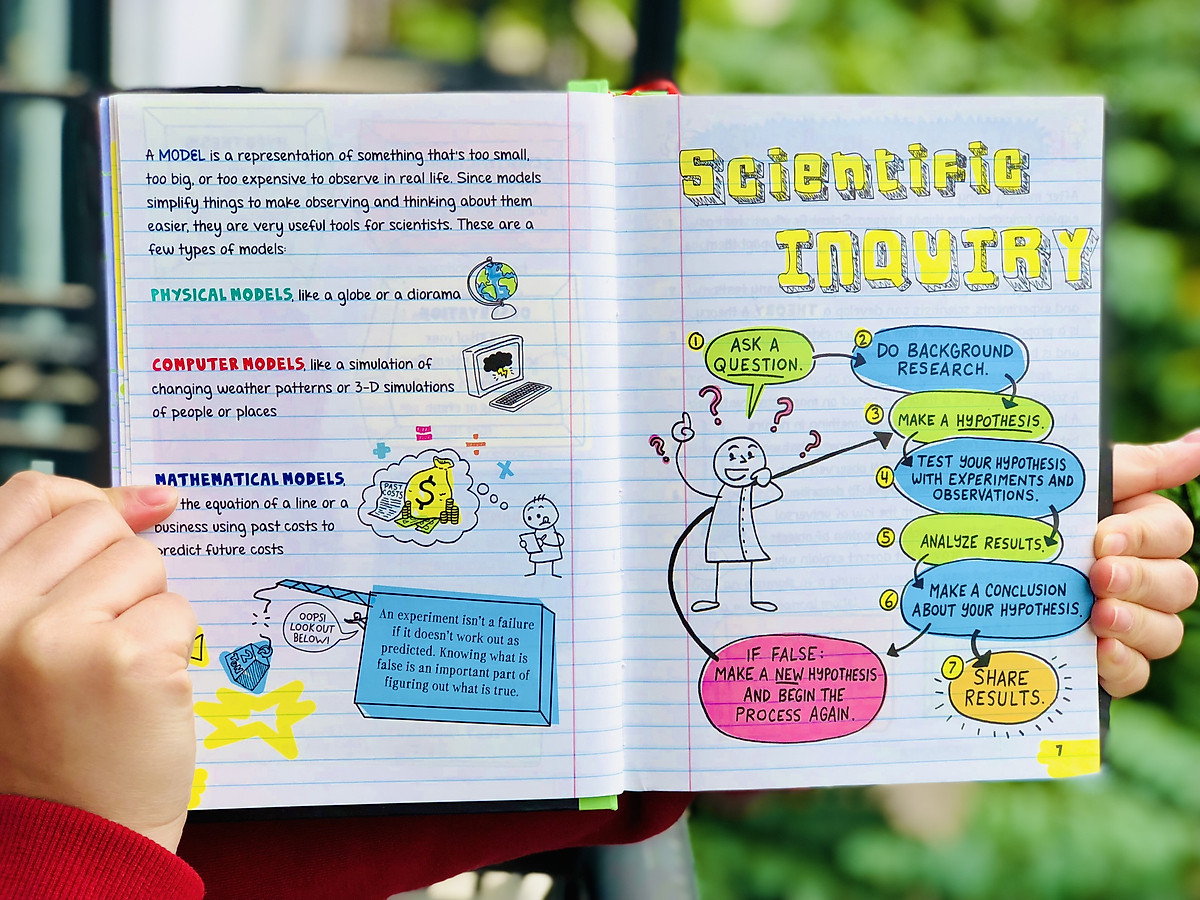 A MODEL is a representation of something that's too small,
too big, or too expensive to observe in real life. Since models
simplify things to make observing and thinking about them
easier, they are very useful tools for scientists. These are a
few types of models:
PHYSICAL MODELS, like a globe or a diorama
COMPUTER MODELS, like a simulation of
changing weather patterns or 3-D simulations
of people or places
MATHEMATICAL MODELS,
the equation of a line or a
business using past costs to
predict future costs
PAST
COSTS
$
OOPS!
LOOK OUT
BELOW!
An experiment isn't a failure
if it doesn't work out as
predicted. Knowing what is
false is an important part of
figuring out what is true.
Scientific
INQUIRY
1 ASK A
QUESTION.
2 DO BACKGROUND
RESEARCH.
3 MAKE A HYPOTHESIS.
4 TEST YOUR HYPOTHESIS
WITH EXPERIMENTS AND
OBSERVATIONS.
5 ANALYZE RESULTS.
6 MAKE A CONCLUSION
ABOUT YOUR HYPOTHESIS.
IF FALSE:
MAKE A NEW HYPOTHESIS
AND BEGIN THE
PROCESS AGAIN.
7 SHARE
RESULTS.
7